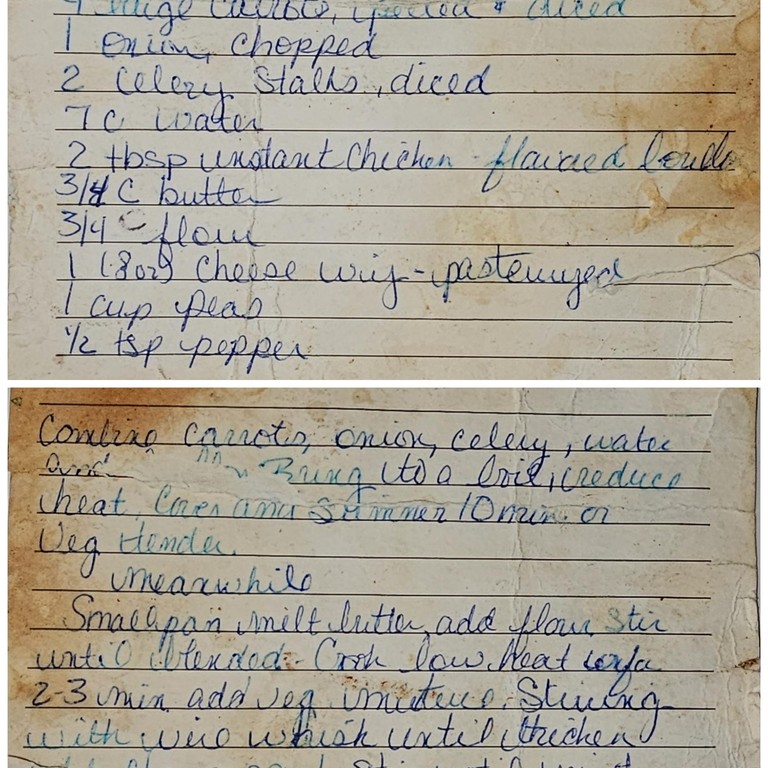 large carrots, peeled & diced
1 onion, chopped
2 Celery Stalks, diced
7 c water
2 tbsp instant chicken-flavored
3/4 C butter
3/4 c flour
1 (8oz) Cheese - pasteurized
1 cup peas
1/2 tsp pepper
Combine carrots, onion, celery, water
and Bring to a boil, reduce
heat. Cover and Simmer 10 min. or
Veg tender.
Meanwhile
Small pan melt butter add flour Stir
until blended - Cook low heat
2-3 min add veg mixture. Stirring
with wire whisk until thicken